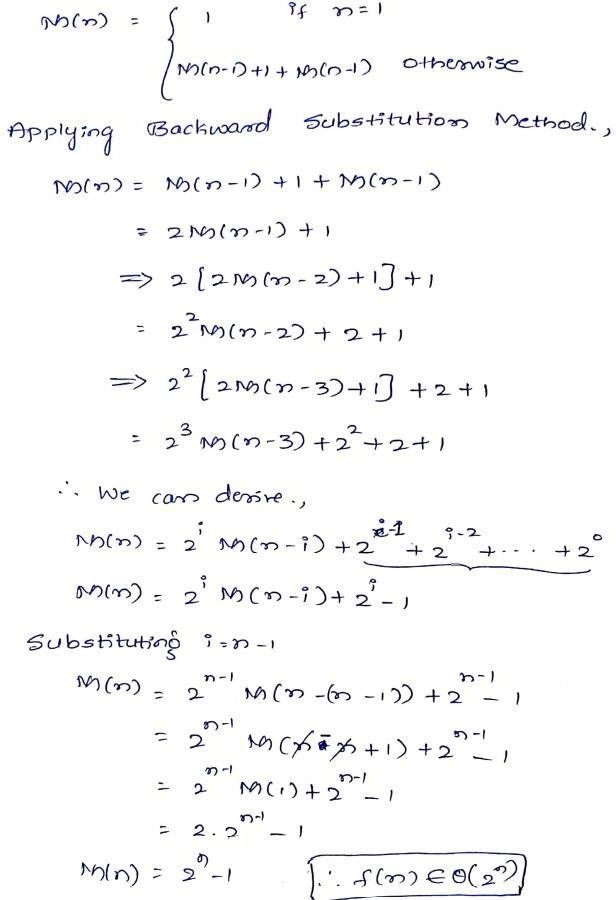 M(n) = { 1 if n=1
M(n-1)+1+M(n-1) otherwise
Applying Backward Substitution Method.,
M(n) = M(n-1)+1+M(n-1)
= 2M(n-1)+1
⇒ 2[2M(n-2)+1]+1
= 2²M(n-2)+2+1
⇒ 2²[2M(n-3)+1]+2+1
= 2³M(n-3)+2²+2+1
∴ We can derive.,
M(n) = 2ⁱ M(n-i)+2ⁱ⁻¹+2ⁱ⁻²+...+2⁰
M(n) = 2ⁱ M(n-i)+2ⁱ-1
Substituting i=n-1
M(n) = 2ⁿ⁻¹ M(n-(n-1))+2ⁿ⁻¹-1
= 2ⁿ⁻¹ M(n-n+1)+2ⁿ⁻¹-1
= 2ⁿ⁻¹ M(1)+2ⁿ⁻¹-1
= 2.2ⁿ⁻¹-1
M(n) = 2ⁿ-1 ∴ f(n)∈Θ(2ⁿ)